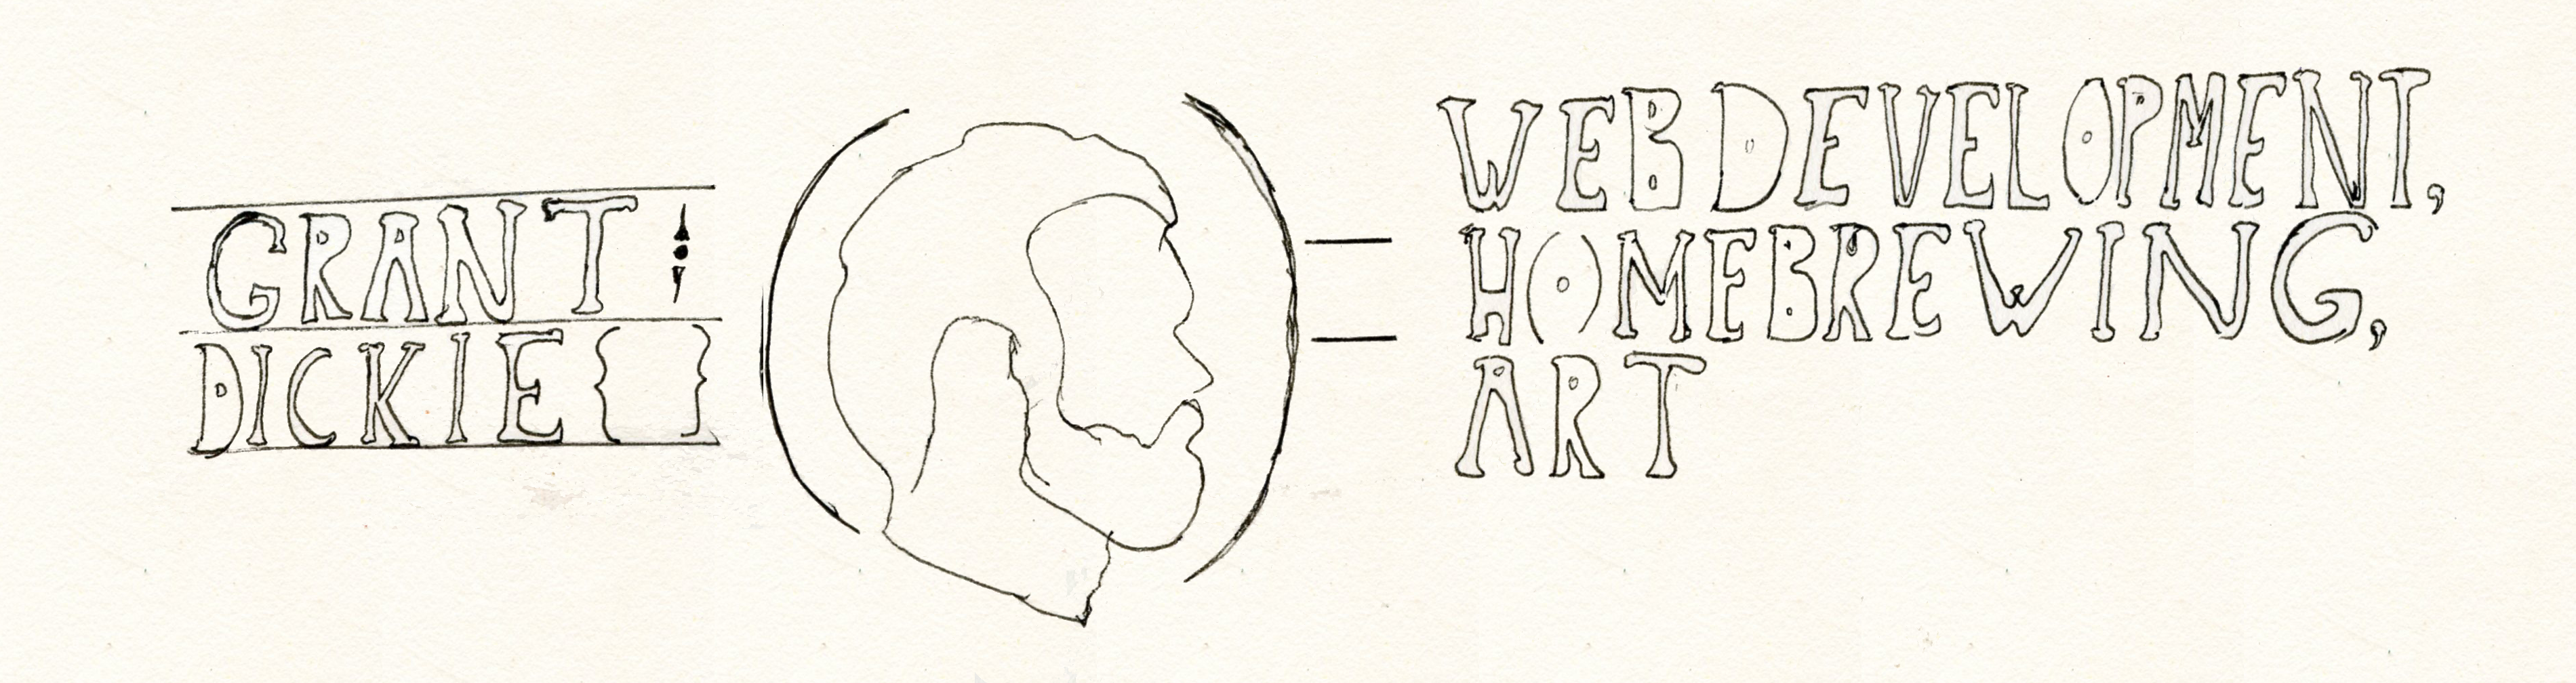 GRANT
DICKIE { }
=
WEB DEVELOPMENT,
HOMEBREWING,
ART